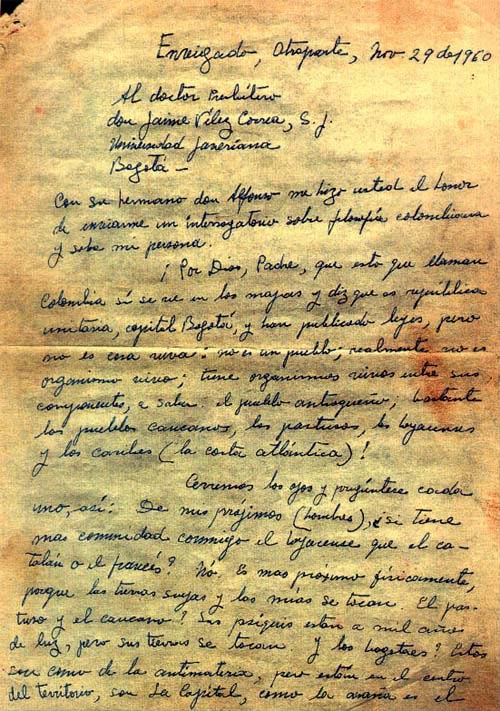 Envigado, Otraparte, Nov. 29 de 1960
Al doctor Presbítero
don Jaime Vélez Correa, S. j.
Universidad Javeriana
Bogotá —
Con su hermano don Alfonso me hizo usted el honor
de enviarme un interrogatorio sobre filosofía colombiana
y sobre mi persona.
¡Por Dios, Padre, que esto que llaman
Colombia sí se ve en los mapas y diz que es república
unitaria, capital Bogotá, y han publicado leyes, pero
no es cosa viva: no es un pueblo; realmente no es
organismo vivo; tiene organismos vivos entre sus
componentes, a saber: el pueblo antioqueño; bastante
los pueblos caucanos, los pastusos, los boyacenses
y los caribes (la costa atlántica)!
Cerremos los ojos y pregúntese cada
uno, así: De mis prójimos (hombres), ¿si tiene
mas comunidad conmigo el boyacense que el ca-
talán o el francés? No. Es mas próximo físicamente,
porque las tierras suyas y las mías se tocan. El pas-
tuso y el caucano? Sus psiquis están a mil años
de luz, pero sus tierras se tocan. Y los bogotanos? Estos
son como de la antimateria, pero están en el centro
del territorio, son La Capital, como la araña es el